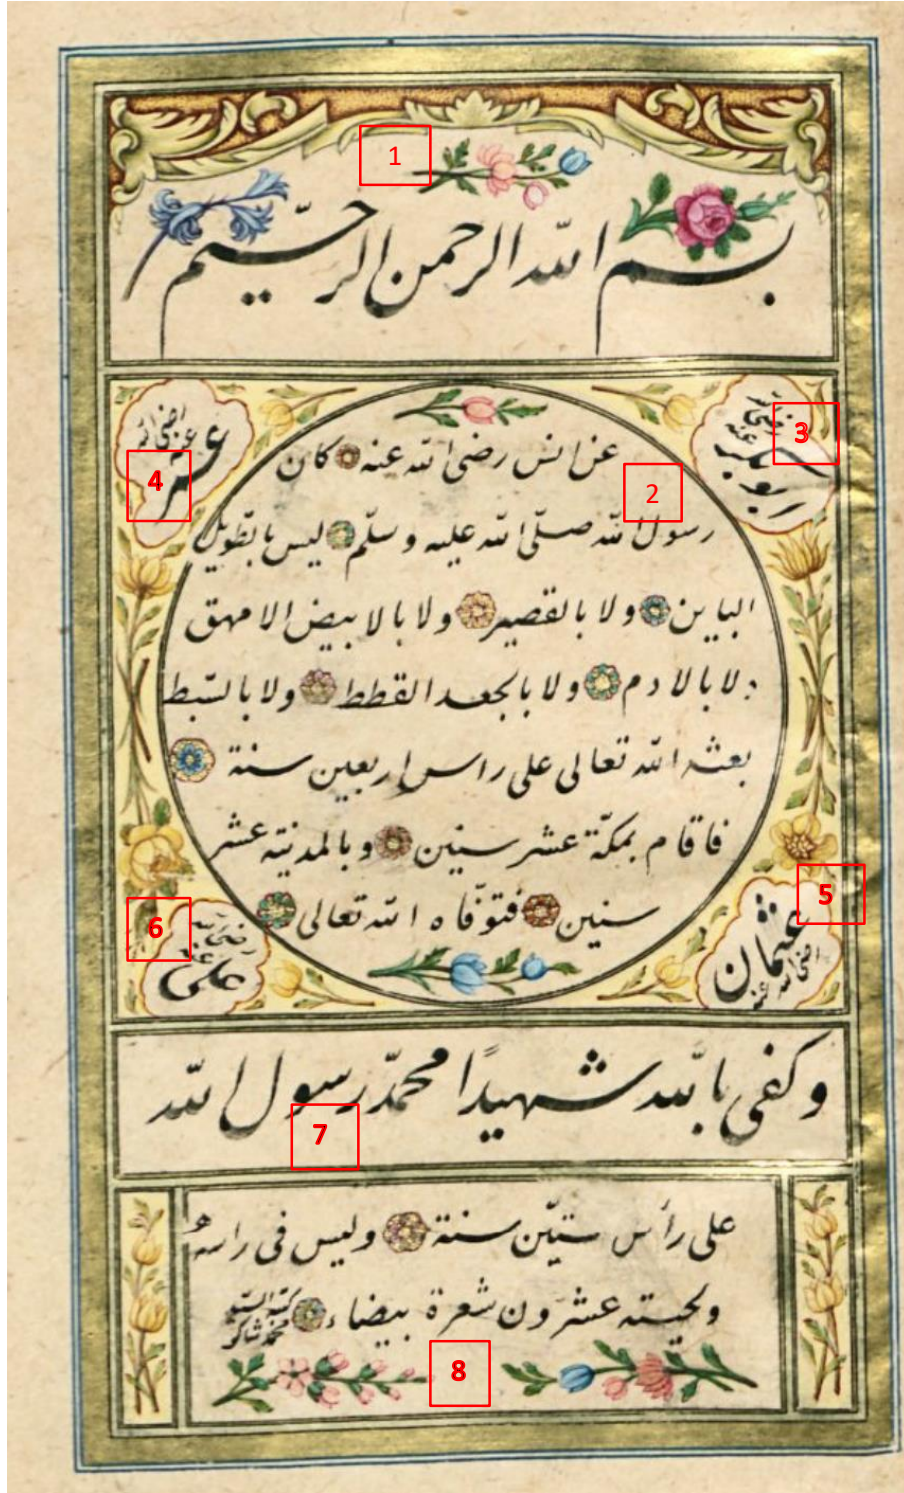 1
بسم الله الرحمن الرحيم
3
ابو بكر رضى الله عنه
4
عمر رضى الله عنه
2
عن انس رضى الله عنه كان
رسول الله صلّى الله عليه وسلّم ليس بالطّويل
الباين ولا بالقصير ولا بالابيض الامهق
ولا بالادم ولا بالجعد القطط ولا بالسّبط
بعثه الله تعالى على راس اربعين سنة
فاقام بمكّة عشر سنين وبالمدينة عشر
سنين فتوفّاه الله تعالى
5
عثمان رضى الله عنه
6
على رضى الله عنه
وكفى بالله شهيدًا محمّد رسول الله
7
على رأس ستيّن سنة وليس فى راسه
ولحيته عشرون شعرة بيضاء
كتبه السيد
محمد شاكر
8